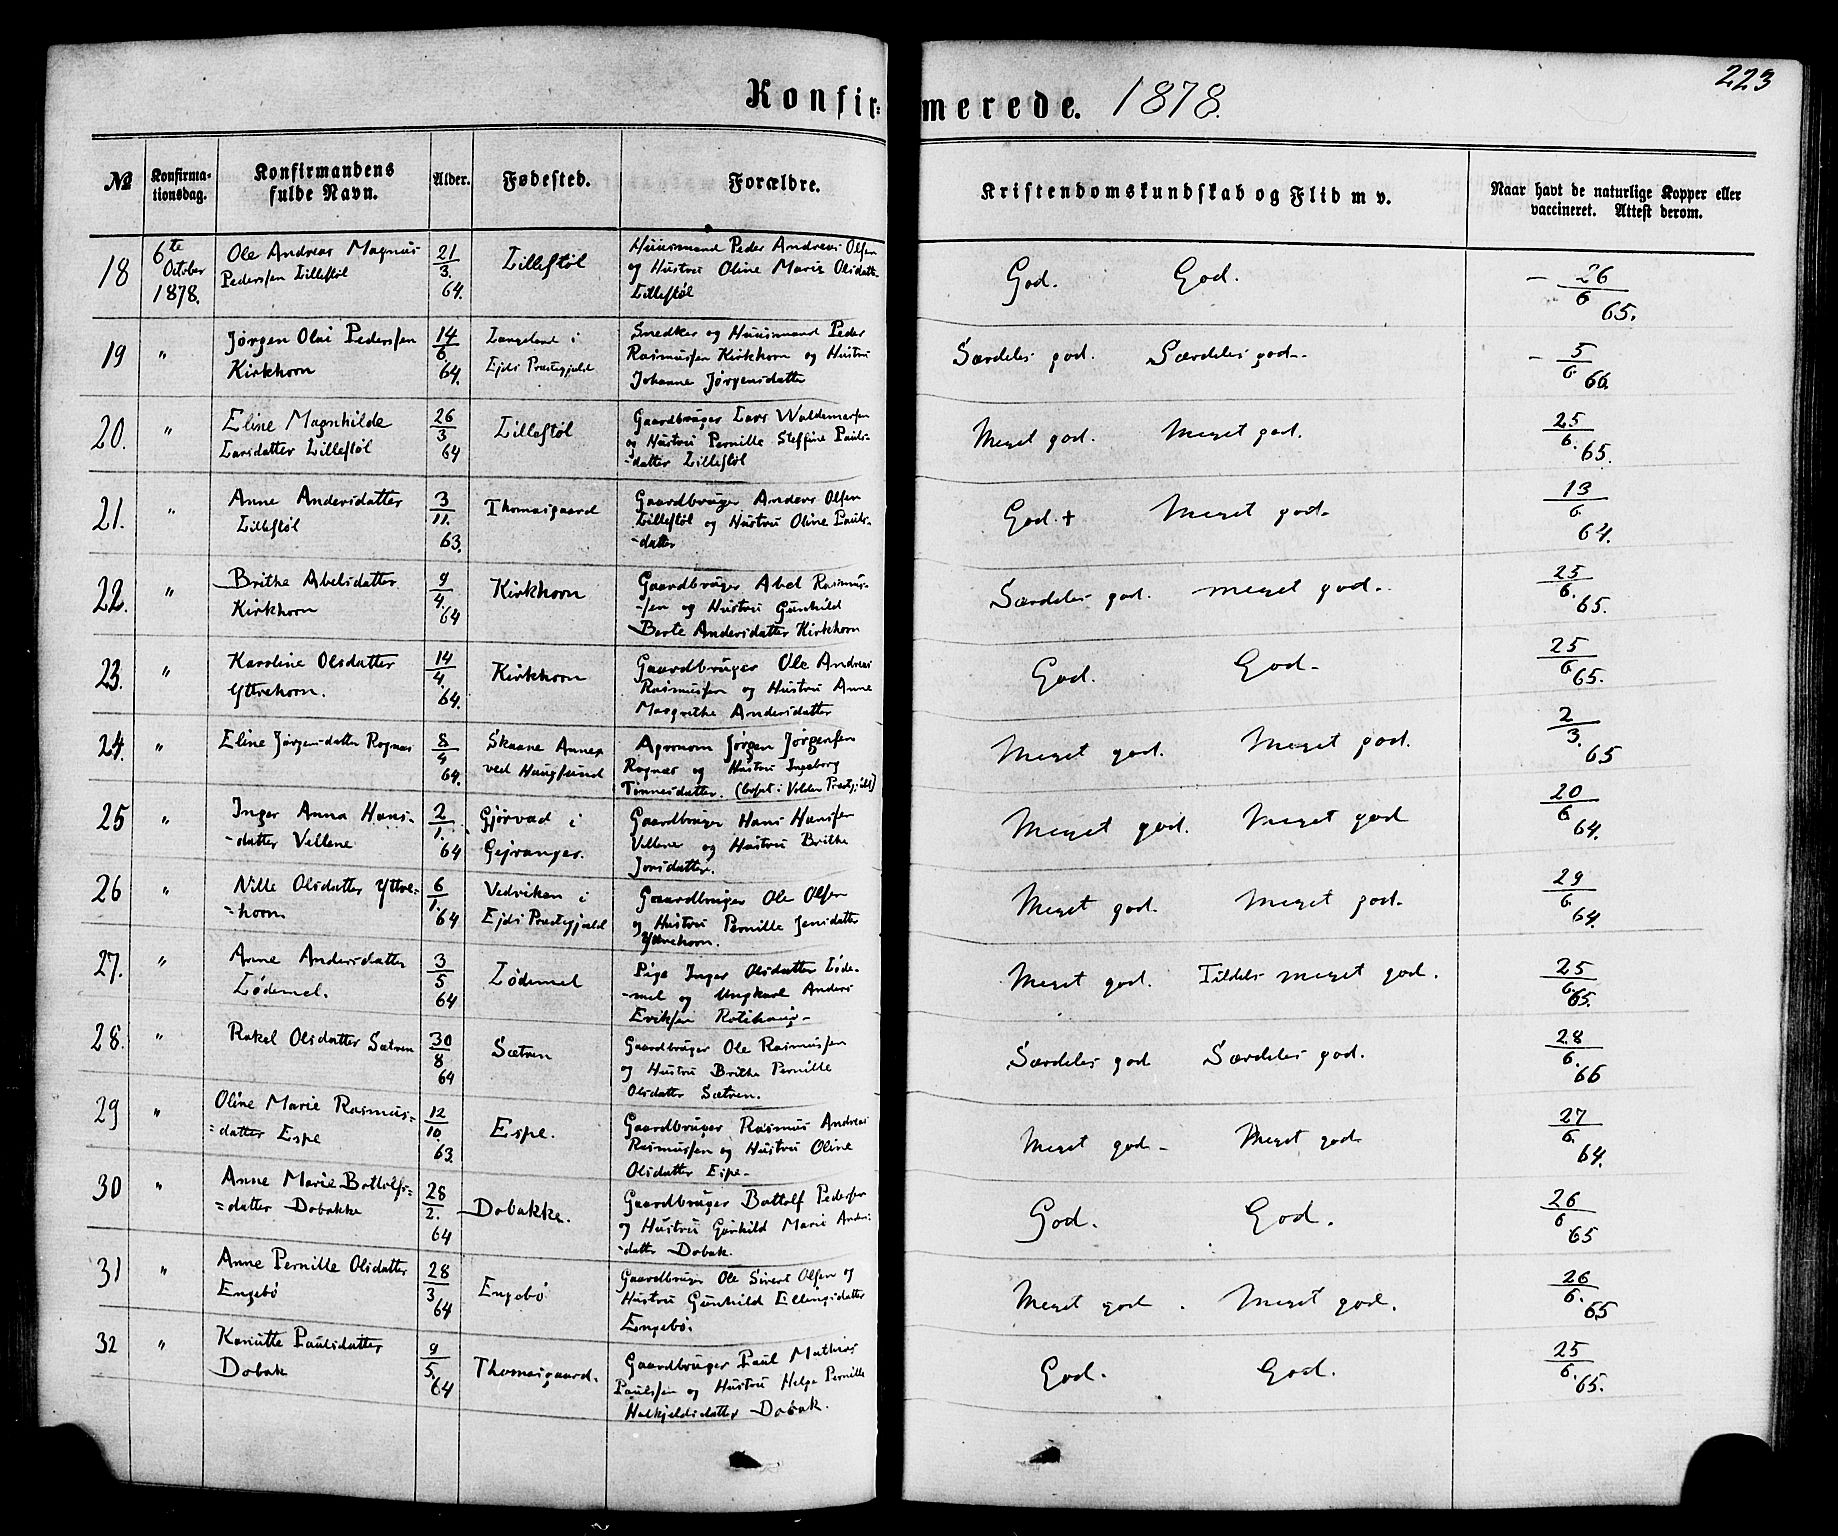 223
Konfirmerede. 1878.
№ Konfirmationsdag. Konfirmandens fulde Navn. Alder. Fødested. Forældre. Kristendomskundskab og Flid m v. Naar havt de naturlige Kopper eller vaccineret. Attest derom.
18 6te October 1878. Ole Andreas Magnus Pederssen Lillestøl 21/3. 64. Lillestøl Huusmand Peder Andreas Olsen og Hustru Oline Marie Olsdatt. Lillestøl God. God. - 26/6 65.
19 " Jørgen Olai Pederssen Kirkhorn 14/6. 64. Langeland i Ejds Præstegjeld Snedker og Huusmand Peder Rasmussen Kirkhorn og Hustru Johanne Jørgensdatter Særdeles god. Særdeles god. - 5/6. 66.
20. " Eline Magnhilde Larsdatter Lillestøl 26/3 64 Lillestøl Gaardbruger Lars Waldemarsen og Hustru Pernille Steffine Pauls-datter Lillestøl Meget god. Meget god. 25/6. 65.
21. " Anne Andersdatter Lillestøl 3/11. 63. Thomasgaard Gaardbruger Anders Olsen Lillestøl og Hustru Oline Pauls-datter God + Meget god. 13/6 64.
22. " Brithe Abelsdatter Kirkhorn 9/4. 64 Kirkhorn Gaardbruger Abel Rasmus-sen og Hustru Gunhild Berte Andersdatter Kirkhorn Særdeles god. meget god. 25/6. 65.
23. " Karoline Olsdatter Yttrehorn. 14/4. 64. Kirkhorn Gaardbruger Ole Andreas Rasmussen og Hustru Anne Margrethe Andersdatter God. God. 25/6 65.
24. " Eline Jørgensdatter Rognæs 8/4 64. Skaane Annex ved Haugsund Agronom Jørgen Jørgensen Rognæs og Hustru Ingeborg Tønnesdatter. Meget god. Meget god. 2/3. 65
25 " Inger Anna Hans-datter Vellene 2/1. 64 Gjørvad i Gejranger. Gaardbruger Hans Hansen Vellene og Hustru Brithe Jonsdatter. Meget god. Meget god 20/6 64.
26 " Nille Olsdatter Yttre-horn 6/1. 64 Vedviken i Ejds Præstegjæld Gaardbruger Ole Olsen og Hustru Pernille Jensdatter Yttrehorn. Meget god. Meget god. 29/6. 64.
27. " Anne Andersdatter Lødemel. 3/5 64 Lødemel Pige Inger Olsdatter Løde-mel og Ungkarl Anders Eriksen Rotihaug Meget god. Tildels meget god. 25/6. 65.
28. " Rakel Olsdatter Sætren 30/8 64 Sætren Gaardbruger Ole Rasmussen og Hustru Brithe Pernille Olsdatter Sætren. Særdeles god Særdeles god. 28/6. 66
29 " Oline Marie Rasmus-datter Espe 12/10. 63. Espe. Gaardbruger Rasmus Andreas Rasmussen og Hustru Oline Olsdatter Espe Meget god Meget god 27/6. 64.
30 " Anne Marie Bottolfs-datter Dobakke 28/2. 64 Dobakke. Gaardbruger Bottolf Pedersen og Hustru Gunhild Marie Anders-datter Dobak. God. God. 26/6 65
31 " Anne Pernille Olsdatter Engebø 28/3 64 Engebø Gaardbruger Ole Sivert Olsen og Hustru Gunhild Ellingsdatter Engebø. Meget god. Meget god. 26/6. 65
32 " Kanutte Paulsdatter Dobak 9/5. 64 Thomasgaard. Gaardbruger Paul Mathias Paulssen og Hustru Helge Pernille Halkjeldsdatter Dobak. God. God. 25/6. 65.